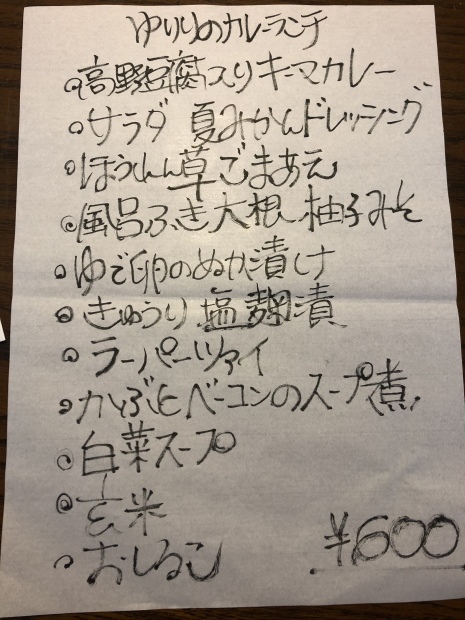 ゆりりのカレーランチ
◎高野豆腐入りキーマカレー
◎サラダ 夏みかんドレッシング
◎ほうれん草ごまあえ
◎風呂ふき大根 柚子みそ
◎ゆで卵のぬか漬け
◎きゅうり塩麹漬
◎ラーパーツァイ
◎かぶとベーコンのスープ煮
◎白菜スープ
◎玄米
◎おしるこ
¥600